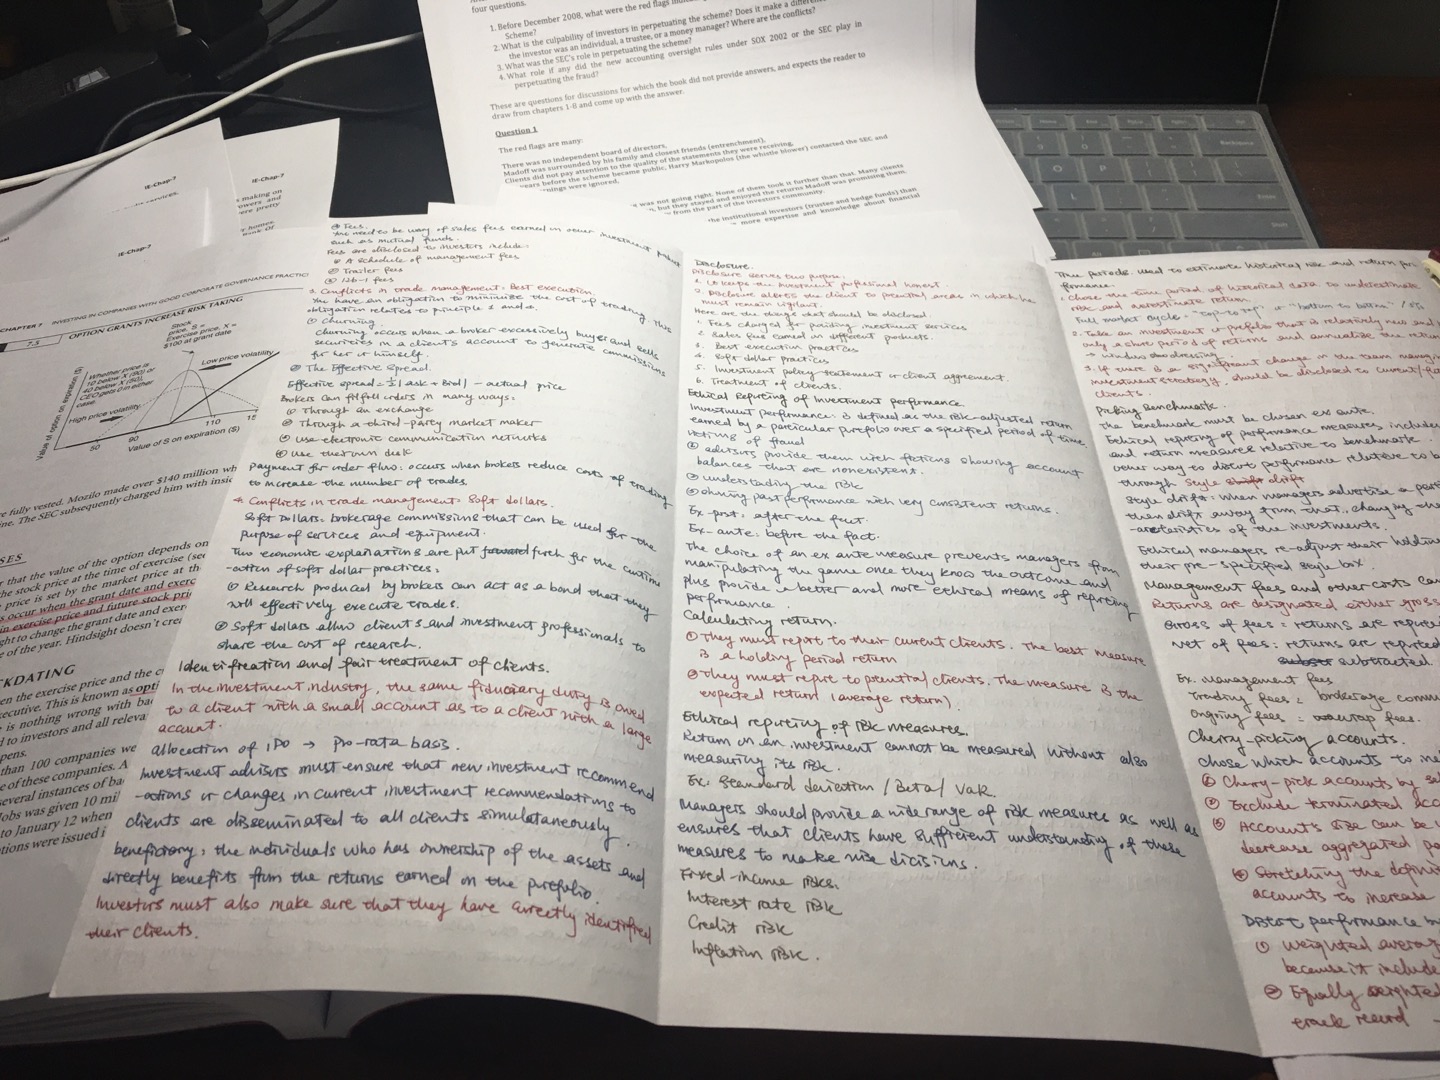 four questions.
1. Before December 2008, what were the red flags
Scheme?
2. What is the culpability of investors in perpetuating the scheme? Does it make a
the investor was an individual, a trustee, or a money manager? Where are the conflicts?
3. What was the SEC's role in perpetuating the scheme?
4. What role if any did the new accounting oversight rules under SOX 2002 or the SEC play in
perpetuating the fraud?
These are questions for discussions for which the book did not provide answers, and expects the reader to
draw from chapters 1-8 and come up with the answer.
Question 1
The red flags are many:
There was no independent board of directors,
Madoff was surrounded by his family and closest friends (entrenchment),
Clients did not pay attention to the quality of the statements they were receiving,
years before the scheme became public, Harry Markopolos (the whistle blower) contacted the SEC and
were ignored.
was not going right. None of them took it further than that. Many clients
but they stayed and enjoyed the returns Madoff was promising them.
from the part of the investors community.
the institutional investors (trustee and hedge funds) than
more expertise and knowledge about financial
IE-Chap-7
services.
IE-Chap-7
making on
IE-Chap-7
CHAPTER 7 INVESTING IN COMPANIES WITH GOOD CORPORATE GOVERNANCE PRACTIC
7.5 OPTION GRANTS INCREASE RISK TAKING
Stock
price, S =
Exercise price, X =
$100 at grant date
Low price volatility
Whether price is
10 below X (90) or
40 below X (50),
CEO gets 0 in either
case.
High price volatility
Value of option on expiration ($)
50 90 110 15
Value of S on expiration ($)
fully vested. Mozilo made over $140 million wh
The SEC subsequently charged him with insi
SES
that the value of the option depends on
the stock price at the time of exercise (se
price is set by the market price at th
occur when the grant date and exerc
in exercise price and future stock pri
to change the grant date and exer
of the year. Hindsight doesn't cre
KDATING
en the exercise price and the c
ecutive. This is known as opti
is nothing wrong with bac
to investors and all releva
pens.
than 100 companies we
of these companies. A
several instances of ba
Jobs was given 10 mil
to January 12 when
tions were issued i
① Fees.
You need to be wary of sales fees earned in other investment
such as mutual funds.
Fees are disclosed to investors include:
① A schedule of management fees
② Trailer fees
③ 12b-1 fees
3. Conflicts in trade management: Best execution.
You have an obligation to minimize the cost of trading. This
obligation relates to principle 1 and 2.
① Churning.
Churning occurs when a broker excessively buys and sells
securities in a client's account to generate commissions
for her or himself.
② The Effective Spread.
Effective spread = ½ (ask + Bid) - actual price
Brokers can fulfill orders in many ways:
① Through an exchange
② Through a third-party market maker
③ use electronic communication networks
④ use their own desk
Payment for order flow: occurs when brokers reduce costs of trading
to increase the number of trades.
4. Conflicts in trade management: Soft dollars.
Soft Dollars: brokerage commissions that can be used for the
purpose of services and equipment.
Two economic explanations are put forward forth for the
of soft dollar practices:
① Research produced by brokers can act as a bond that they
will effectively execute trades.
② Soft dollars allow clients and investment professionals to
share the cost of research.
Identification and fair treatment of clients.
In the investment industry, the same fiduciary duty is owed
to a client with a small account as to a client with a large
account.
allocation of IPO → Pro-rata basis.
Investment advisors must ensure that new investment recommend
-ations or changes in current investment recommendations to
clients are disseminated to all clients simultaneously.
beneficiary: the individuals who has ownership of the assets and
directly benefits from the returns earned on the portfolio.
Investors must also make sure that they have correctly identified
their clients.
Disclosure.
Disclosure serves two purpose:
1. It keeps the investment professional honest.
2. Disclosure alerts the client to potential areas in which he
must remain vigilant.
Here are the things that should be disclosed:
1. Fees charged for providing investment services
2. Sales fees earned in different products.
3. Best execution practices
4. Soft dollar practices
5. Investment policy statement or client agreement.
6. Treatment of clients.
Ethical Reporting of Investment performance.
Investment performance: is defined as the risk-adjusted return
earned by a particular portfolio over a specified period of time
victims of fraud
① advisors provide them with fictions showing account
balances that are nonexistent.
② understanding the risk
③ showing past performance with very consistent returns.
Ex-post: after the fact.
Ex-ante: before the fact.
The choice of an ex ante measure prevents managers from
manipulating the game once they know the outcome and
plus provide a better and more ethical means of reporting
performance.
Calculating return.
① They must report to their current clients. The best measure
is a holding period return
② They must report to potential clients. The measure is the
expected return (average return).
Ethical reporting of risk measures.
Return on an investment cannot be measured without also
measuring its risk.
Ex: Standard deviation / Beta / VaR.
Managers should provide a wide range of risk measures as well as
ensures that clients have sufficient understanding of these
measures to make wise dicisions.
Fixed-income risks.
Interest rate risk
Credit risk
Inflation risk.
Time periods: used to estimate historical risk and return per
formance.
1. Chose the time period of historical data to underestimate
risk and overestimate return.
Full market cycle = "top-to top" or "bottom to bottom"
2. Take an investment or portfolio that is relatively new and
only a share period of returns and annualize the return
→ window dressing
3. If there is a significant change in the team
investment strategy, should be disclosed to current/
clients.
Picking Benchmark.
The benchmark must be chosen ex ante.
Ethical reporting of performance measures, include
and return measures relative to benchmark.
other way to distort performance relative to b
through style drift
Style drift: when managers advertise a
then drift away from that, changing the
-acteristics of the investments.
Ethical managers re-adjust their holding
their pre-specified style box.
Management fees and other costs can
Returns are designated either gross
Gross of fees: returns are reporte
Net of fees: returns are reported
subtracted.
Ex. Management fees
Trading fees: brokerage comm
Ongoing fees: wrap fees.
Cherry-picking accounts.
Chose which accounts to in
① Cherry-pick accounts by
② Exclude terminated acc
③ Account's size can be
decrease aggregated
④ Stretching the defini
accounts to increase
Distort performance
① Weighted averag
because it include
② Equally weighted
track record